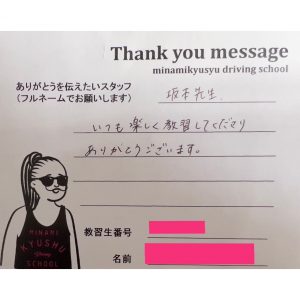 Thank you message
minamikyusyu driving school
ありがとうを伝えたいスタッフ
(フルネームでお願いします)
坂本先生
いつも楽しく教習してくださり
ありがとうございます。
MINAMI
KYUSHU
Driving
SCHOOL
教習生番号
名前